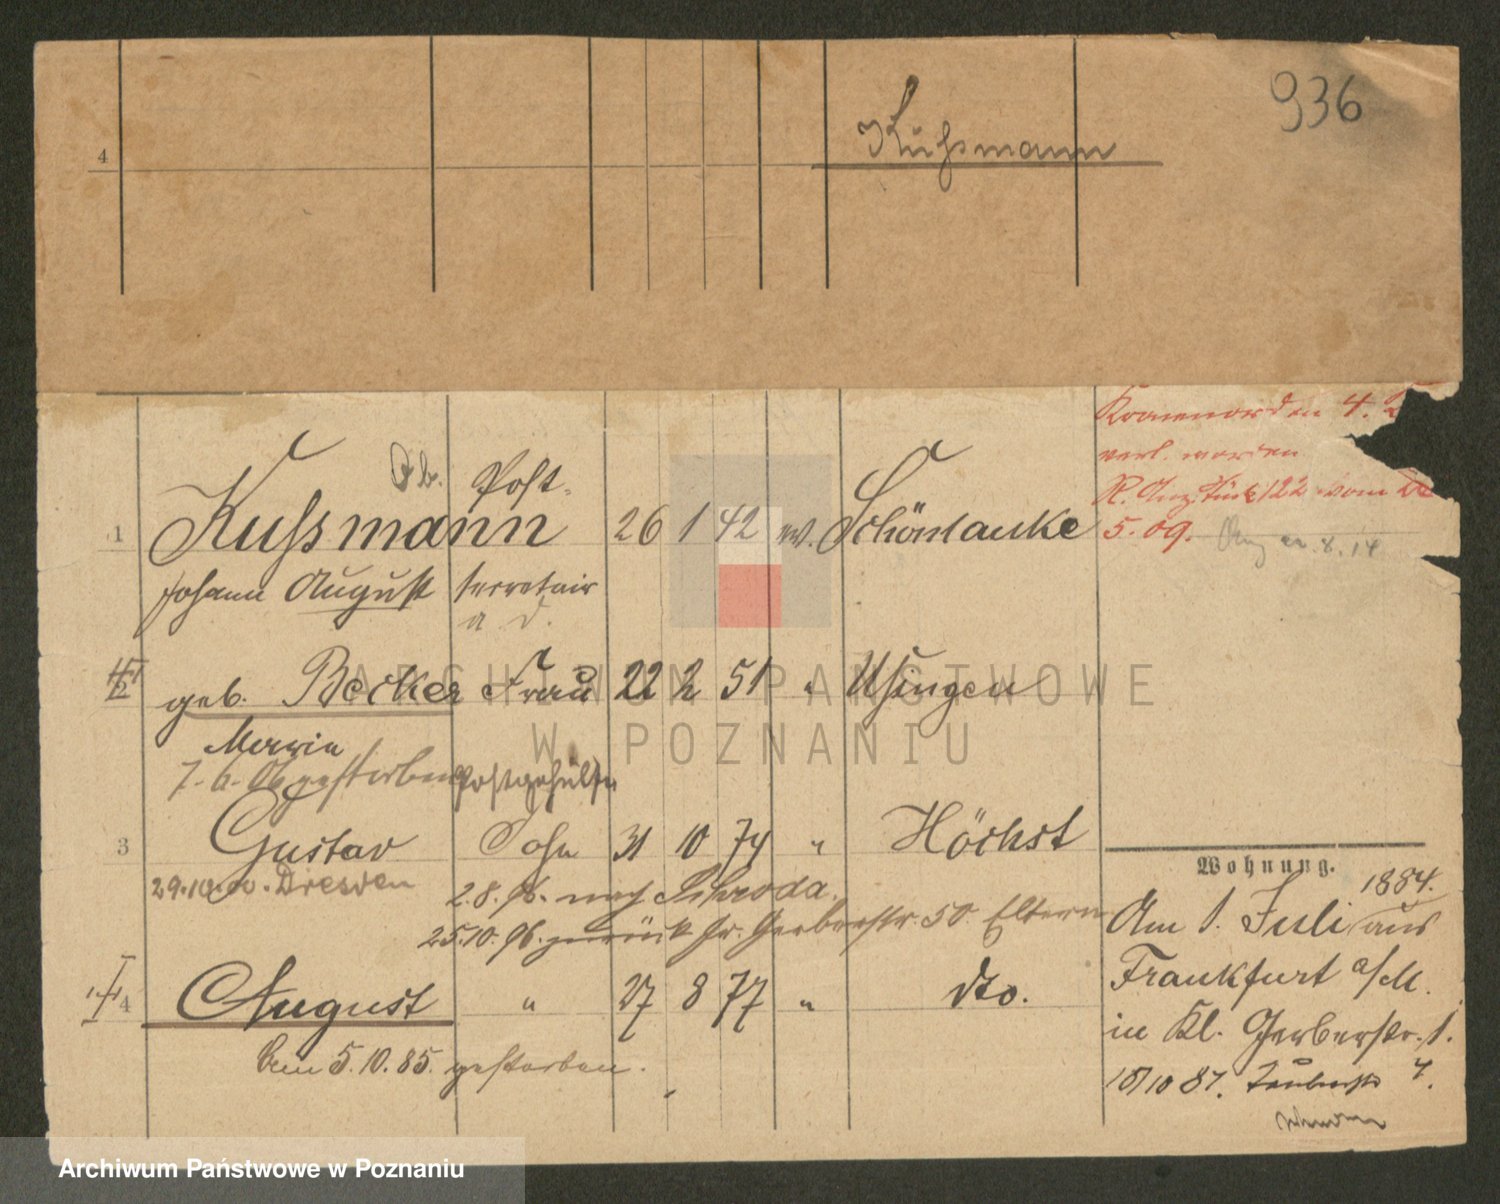 936
4
Kußmann
Kronenorden 4.
verl. worden
R. Anz. Stück 122 vom
5. 09.
Post-
1 Kußmann 26 1 42 ev. Schönlanke
Johann August secretair
a. D.
2 geb. Becker Frau 22 2 51 " Usingen
7. 6. 06 gestorben Postgehülfe
3 Gustav Sohn 31 10 74 " Höchst
29.10.00. Dresden
2.8.96. nach Schroda.
25.10.96. zurück Gr. Gerberstr. 50 Eltern
4 August " 27 8 77 " dto.
Am 5.10.85. gestorben.
Wohnung.
1884.
Am 1. Juli aus
Frankfurt a/M.
in Kl. Gerberstr. 1.
18/10 87. 7.
ARCHIWUM PAŃSTWOWE
W POZNANIU
Archiwum Państwowe w Poznaniu